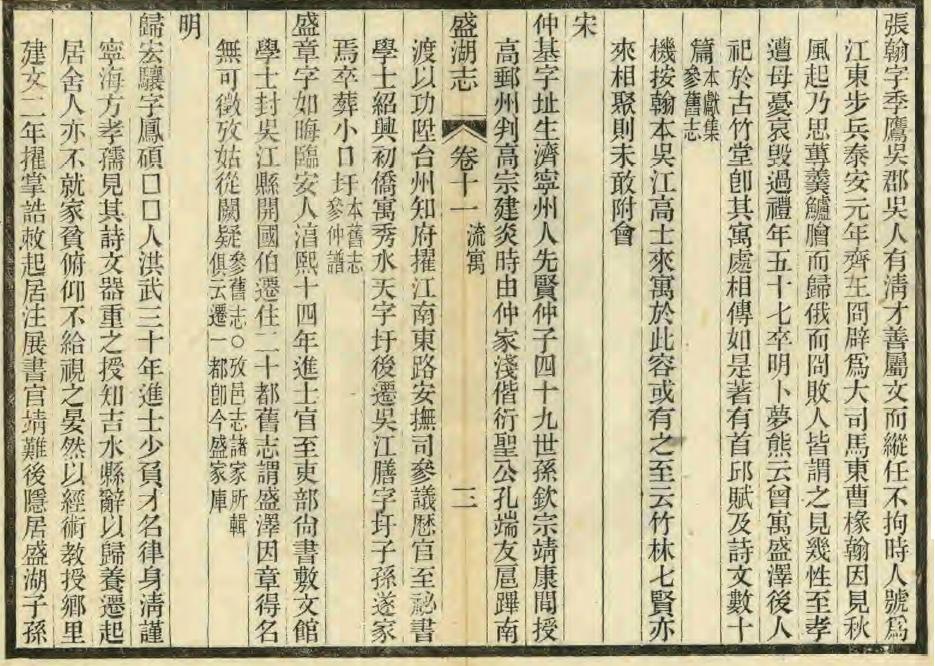 張翰字季鷹吳郡吳人有清才善屬文而縱任不拘時人號爲
江東步兵泰安元年齊王冏辟爲大司馬東曹椽翰因見秋
風起乃思蓴羹鱸膾而歸俄而冏敗人皆謂之見幾性至孝
遭母憂哀毀過禮年五十七卒明卜夢熊云曾寓盛澤後人
祀於古竹堂卽其寓處相傳如是著有首邱賦及詩文數十
篇本獻集
參舊志
機按翰本吳江高士來寓於此容或有之至云竹林七賢亦
來相聚則未敢附會
宋
仲基字址生濟寧州人先賢仲子四十九世孫欽宗靖康閒授
高郵州判高宗建炎時由仲家淺偕衍聖公孔端友扈蹕南
盛湖志
卷十一
流寓
三
渡以功陞台州知府擢江南東路安撫司參議歷官至祕書
學士紹興初僑寓秀水天字圩後遷吳江膳字圩子孫遂家
焉卒葬小口圩本舊志
參仲譜
盛章字如晦臨安人淳熙十四年進士官至吏部尙書敷文館
學士封吳江縣開國伯遷住二十都舊志謂盛澤因章得名
無可徵攷姑從闕疑參舊志○攷邑志諸家所輯
俱云遷一都卽今盛家庫
明
歸宏驤字鳳碩囗囗人洪武三十年進士少負才名律身清謹
寧海方孝孺見其詩文器重之授知吉水縣辭以歸養遷起
居舍人亦不就家貧俯仰不給視之晏然以經術教授鄉里
建文二年擢掌誥敕起居注展書官靖難後隱居盛湖子孫